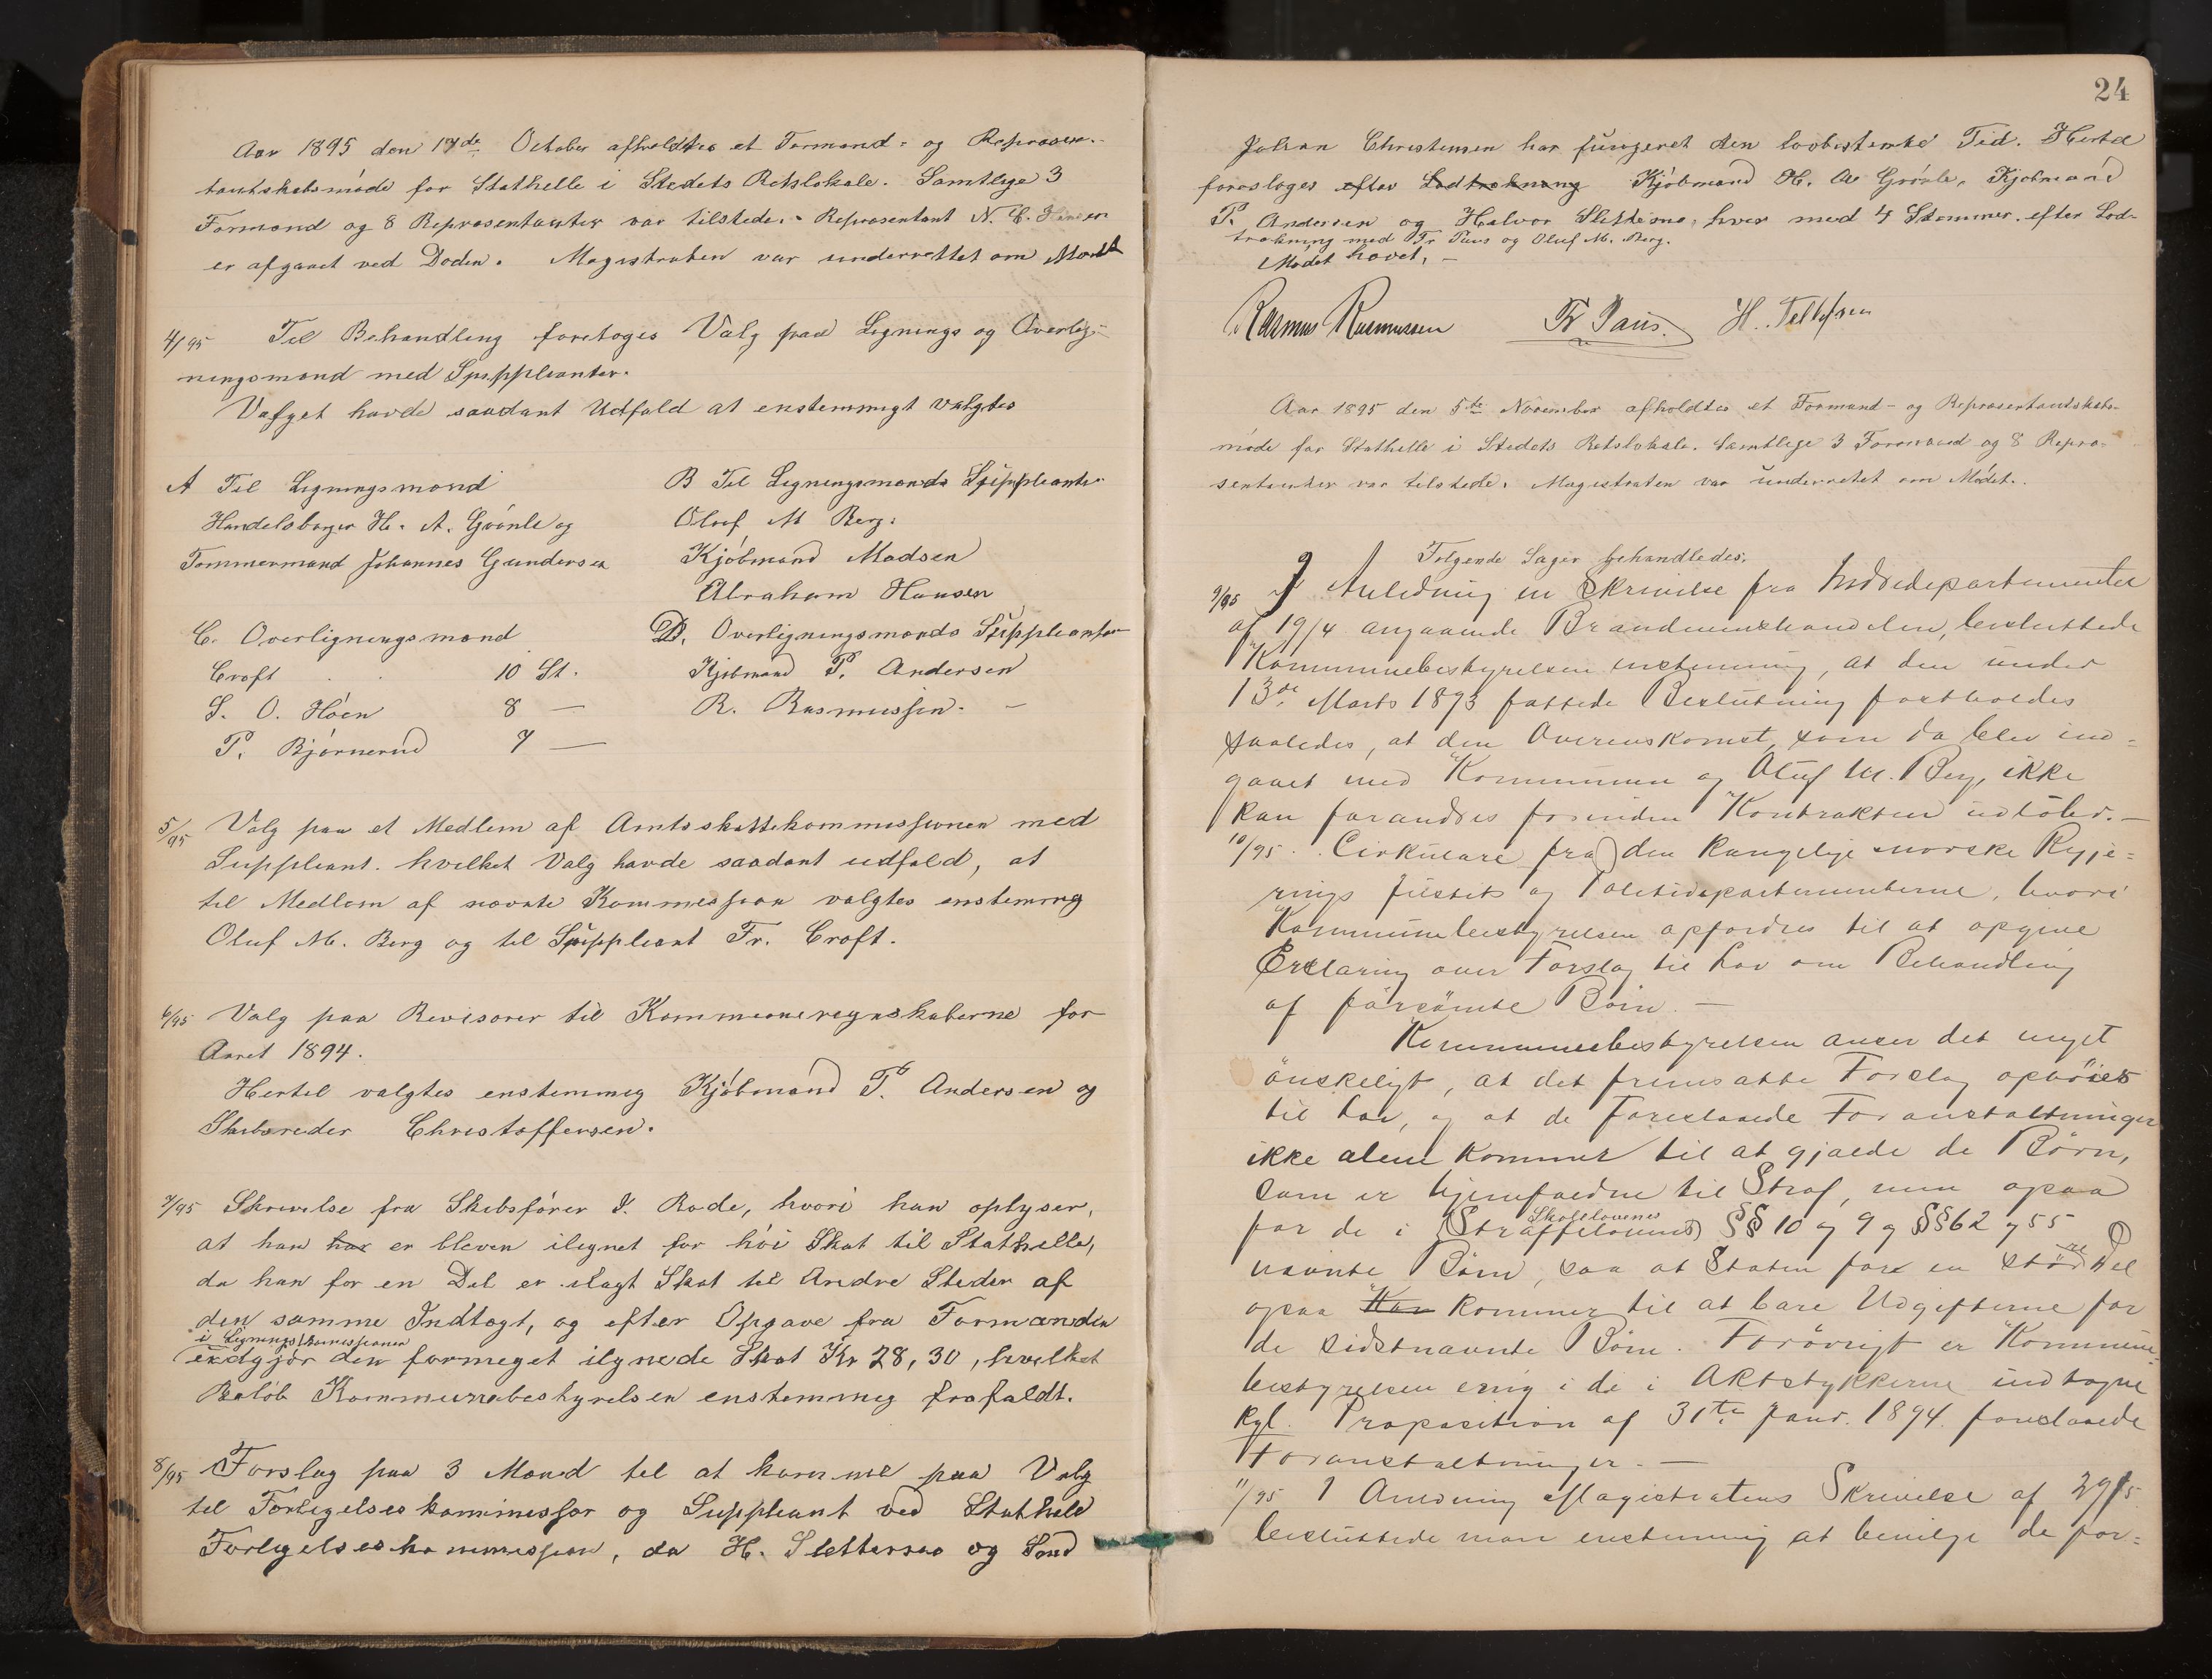 Aar 1895 den 17de October afholdtes et Formand- og Repræsen-
tantskabsmøde for Stathelle i Stedets Retslokale. Samtlige 3
Formænd og 8 Repræsentanter var tilstede. Repræsentant N. C.
er afgaaet ved Døden. Magistraten var underrettet om Mødet
4/95 Til Behandling foretoges Valg paa Lignings og Overlig-
ningsmænd med Suppleanter.
Valget havde saadant Udfald at enstemmigt valgtes
A Til Ligningsmænd
Handelsborger H. A. Grønle og
Tømmermand Johannes Gundersen
B Til Ligningsmænds Suppleanter
Oluf M Berg.
Kjøbmand Madsen
Abraham Hansen
C. Overligningsmænd
Croft 10 St.
S. O. Höen 8 —
P. Bjørnerud 7 —
D. Overligningsmænds Suppleanter
Kjøbmand P. Andersen
R. Rasmussen. —
5/95 Valg paa et Medlem af Amtsskattekommissionen med
Suppleant. hvilket Valg havde saadant udfald, at
til Medlem af nævnte Kommission valgtes enstemmig
Oluf M. Berg og til Suppleant Fr. Croft.
6/95 Valg paa Revisorer til Kommuneregnskaberne for
Aaret 1894.
Hertil valgtes enstemmig Kjøbmand P. Andersen og
Skibsreder Christoffersen.
7/95 Skrivelse fra Skibsfører I. Rode, hvori han oplyser,
at han har er bleven ilignet for høi Skat til Stathelle,
da han for en Del er ilagt Skat til Andre Steder af
den samme Indtægt, og efter Opgave fra Formanden
i Ligningskommissionen
udgjør den formeget ilignede Skat Kr 28,30, hvilket
Beløb Kommunebestyrelsen enstemmig frafaldt.
8/95 Forslag paa 3 Mænd til at komme paa Valg
til Forligelseskommissær og Suppleant ved Stathelle
Forligelseskommission, da H. Slettesnæs og Smd
24
Johan Christensen har fungeret den lovbestemte Tid. Hertil
foresloges efter Lodtrækning Kjøbmand H. A. Grønle, Kjøbmand
P. Andersen og Halvor Slettesnæs, hver med 4 Stemmer. efter Lod-
trækning med Fr Paus og Oluf M. Berg.
Mødet hævet. —
Rasmus Rasmussen Fr Paus. H. Tellefsen
Aar 1895 den 5te November afholdtes et Formand- og Repræsentantskabs-
møde for Stathelle i Stedets Retslokale. Samtlige 3 Formænd og 8 Repræ-
sentanter var tilstede. Magistraten var underrettet om Mødet.
Følgende Sager behandledes.
9/95 I Anledning en Skrivelse fra Indredepartementet
af 19/4 angaaende Brændevinshandelen, besluttede
Kommunebestyrelsen enstemmig, at den under
13de Marts 1893 fattede Beslutning fastholdes
saaledes, at den Overenskomst, som da blev ind-
gaaet med Kommunen og Oluf M. Berg, ikke
kan forandres forinden Kontrakten udløber. —
10/95. Cirkulære fra den kongelige norske Regje-
rings Justits og Politidepartementerne, hvori
Kommunebestyrelsen opfordres til at opgive
Erklæring over Forslag til Lov om Behandling
af forsømte Børn. —
Kommunebestyrelsen anser det meget
ønskeligt, at det fremsatte Forslag ophøies
til Lov, og at de foreslaaede Foranstaltninger
ikke alene kommer til at gjælde de Børn,
som er hjemfaldne til Straf, men ogsaa
Skolelovenes
for de i (Straffelovens) §§ 10 og 9 og §§ 62 og 55
nævnte Børn, saa at Staten for en større Del
ogsaa kommer til at bære Udgifterne for
de sidstnævnte Børn. Forøvrigt er Kommune-
bestyrelsen enig i de i Aktstykkerne indtagne
Kgl. Proposition af 31te Janr. 1894. foreslaaede
Foranstaltninger. —
11/95 I Anledning Magistratens Skrivelse af 29/5
besluttede man enstemmig at bevilge de for-